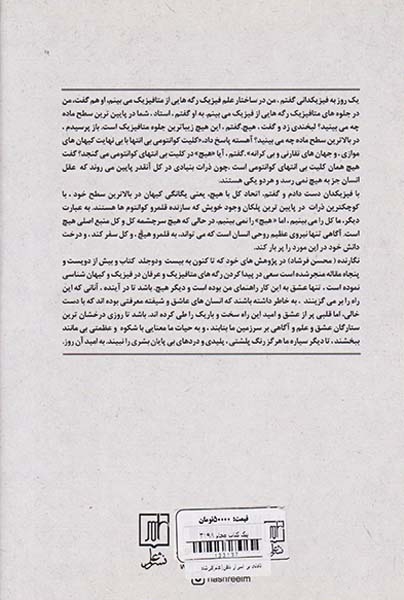 یک روز به فیزیکدانی گفتم ، من در ساختار علم فیزیک رگه هایی از متافیزیک می بینم، او هم گفت، من
در جلوه های متافیزیک رگه هایی از فیزیک می بینم. به او گفتم، استاد ، شما در پایین ترین سطح ماده
چه می بینید؟ لبخندی زد و گفت ، هیچ. گفتم ، این هیچ زیباترین جلوه متافیزیک است. باز پرسیدم ،
در بالاترین سطح ماده چه می بینید؟ آهسته پاسخ داد، «کلیت کوانتومی بی انتها با بی نهایت کیهان های
موازی ، و جهان های تقارنی و بی کرانه». گفتم ، آیا «هیچ» در کلیت بی انتهای کوانتومی می گنجد؟ گفت
هیچ همان کلیت بی انتهای کوانتومی است .چون ذرات بنیادی در کل آنقدر پایین می روند که عقل
انسان جز به هیچ نمی رسد و هر دو یکی هستند.
با فیزیکدان دست دادم و گفتم، اتحاد کل با هیچ، یعنی یگانگی کیهان در بالاترین سطح خود ، با
کوچکترین ذرات در پایین ترین پلکان وجود خویش که سازنده قلمرو کوانتوم ها هستند. به عبارت
دیگر، ما کل را می بینیم ، اما «هیچ» را نمی بینیم. در حالی که هیچ سرچشمه کل و کل منبع اصلی هیچ
است. آگاهی تنها نیروی عظیم روحی انسان است که می تواند، به قلمرو هیچ ، و کل سفر کند ، و درخت
دانش خود در این مورد را پر بار کند.
نگارنده (محسن فرشاد) در پژوهش های خود که تا کنون به بیست و دو جلد کتاب و بیش از دویست و
پنجاه مقاله منجر شده است سعی در پیدا کردن رگه های متافیزیک و عرفان در فیزیک و کیهان شناسی
نموده است ، تنها عشق به این کار راهنمای من بوده است و دیگر هیچ. باشد تا در آینده ، آنانی که این
راه را بر می گزینند ، به خاطر داشته باشند که انسان های عاشق و شیفته معرفتی بوده اند که با دست
خالی، اما قلبی پر از عشق و امید این راه سخت و باریک را طی کرده اند. باشد تا روزی درخشان ترین
ستارگان عشق و علم و آگاهی بر سرزمین ما بتابند ، و به حیات ما معنایی با شکوه و عظمتی بی مانند
ببخشند ، تا دیگر سیاره ما هرگز رنگ پلشتی ، پلیدی و دردهای بی پایان بشری را نبیند. به امید آن روز.
قیمت: ۵۰۰۰۰تومان
نشر علم
nashreelm